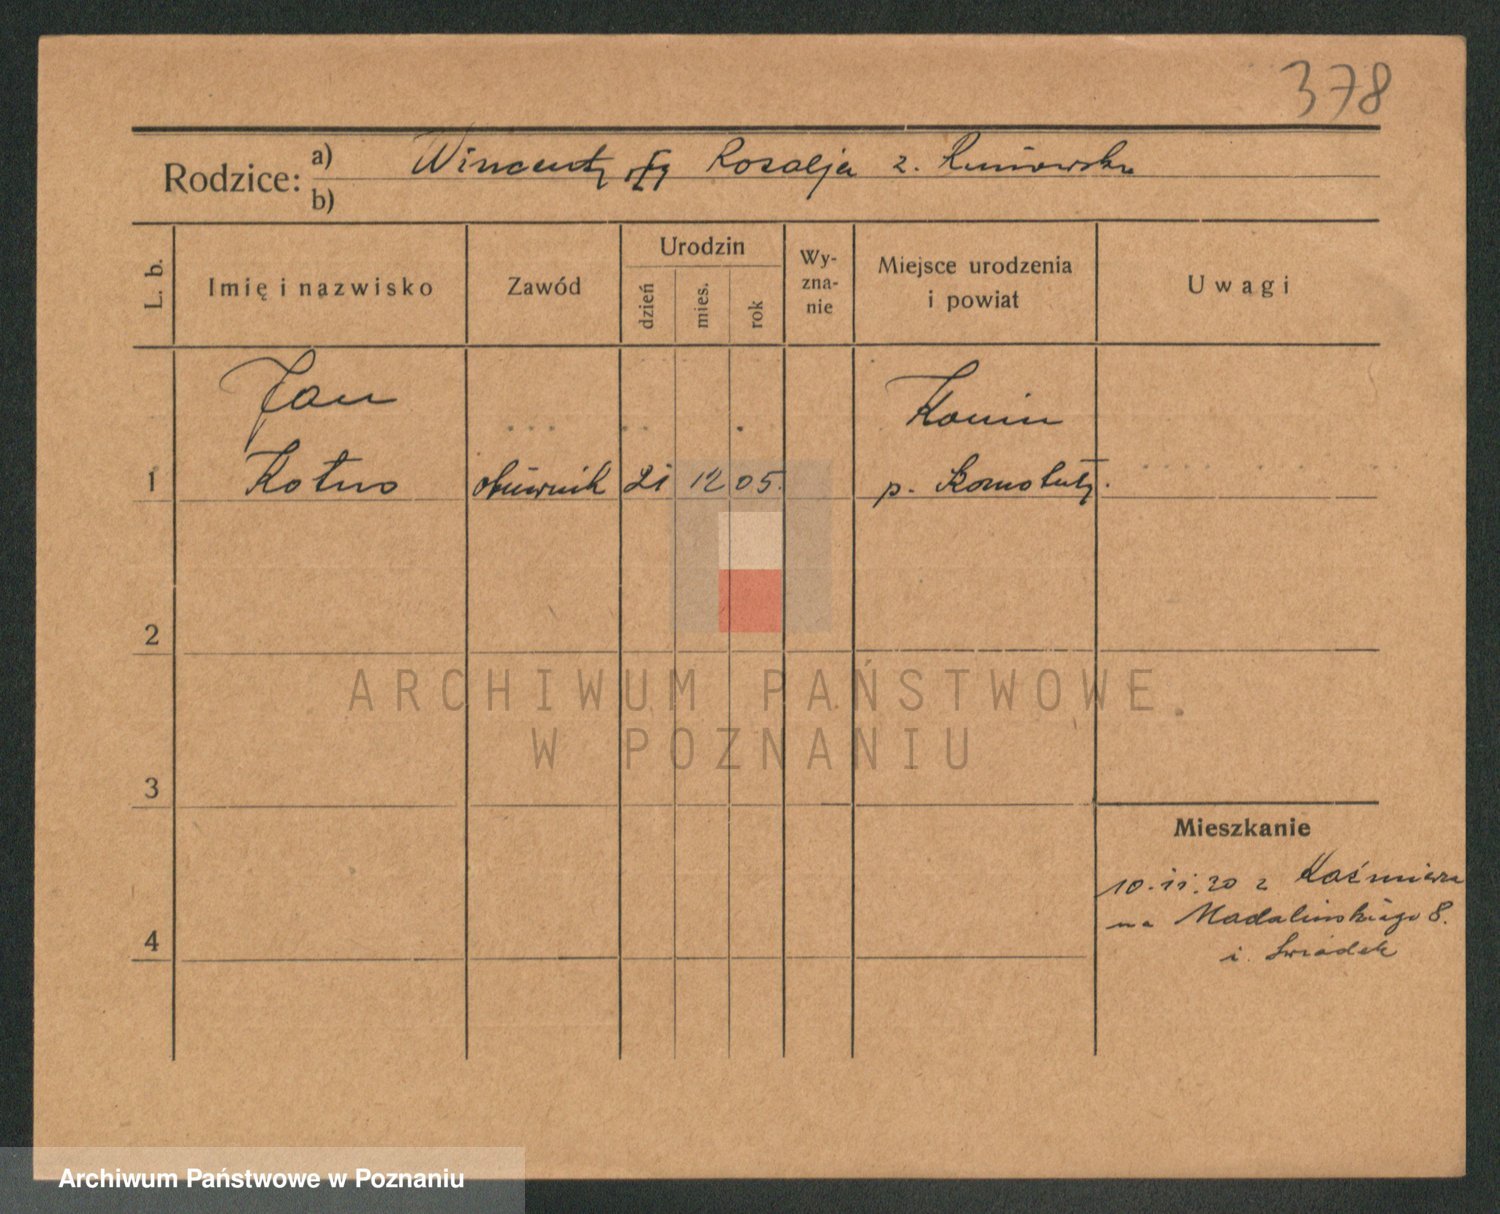 378
Rodzice: a) Wincenty Rozalja z.
b)
L. b. Imię i nazwisko Zawód Urodzin dzień mies. rok Wy-zna-nie Miejsce urodzenia i powiat Uwagi
Jan Konin
1 Kotus obuwnik 21 12 05. p.
2
ARCHIWUM PAŃSTWOWE
W POZNANIU
3
Mieszkanie
10.11.20 z Kaźmierza
na Madalińskiego 8.
4
i. Świadek
Archiwum Państwowe w Poznaniu